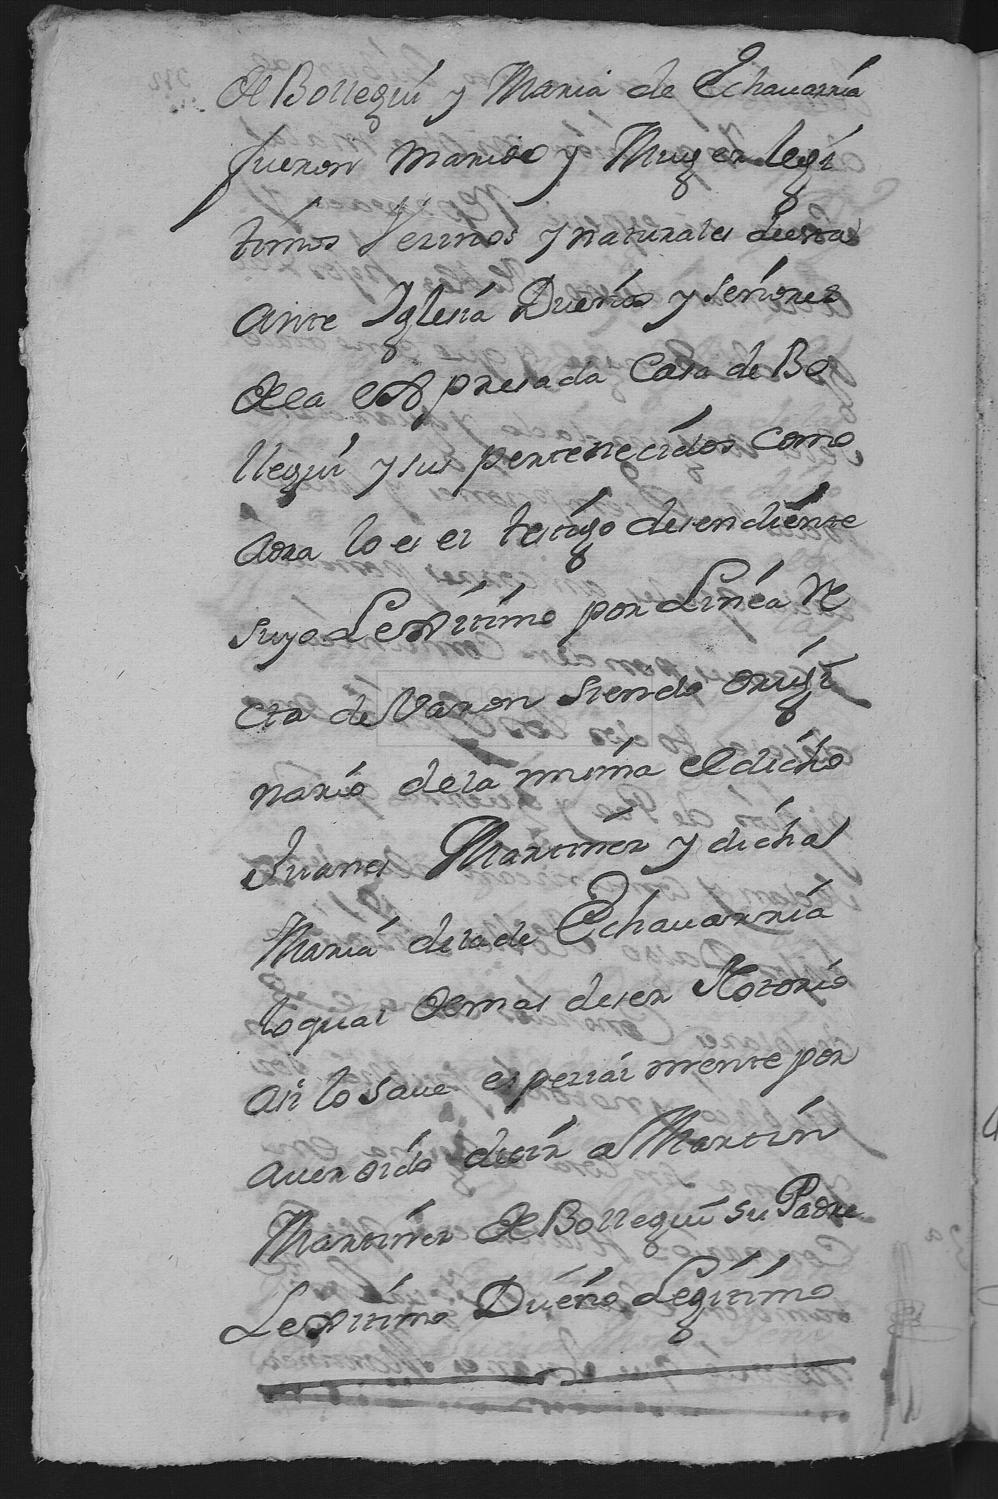 de Bolleguí y Maria de Echauarría
fueron marido y Muger legí
timos Vezinos y naturales de esta
Ante Iglesia Dueños y señores
de la expresada Casa de Bo
lleguí y sus pertenecídos como
aora lo es el testigo desendiente
suyo Lexítimo por Línea Re
cta de Varon siendo origi
nario de la misma el dicho
Juanes Martínez y dicha
María de la de Echauarría
lo qual demas de ser Notorio
asi lo saue espezial mente por
auer oído dezír a Martín
Martínez de Bolleguí su Padre
Lexitimo Dueño Legítimo